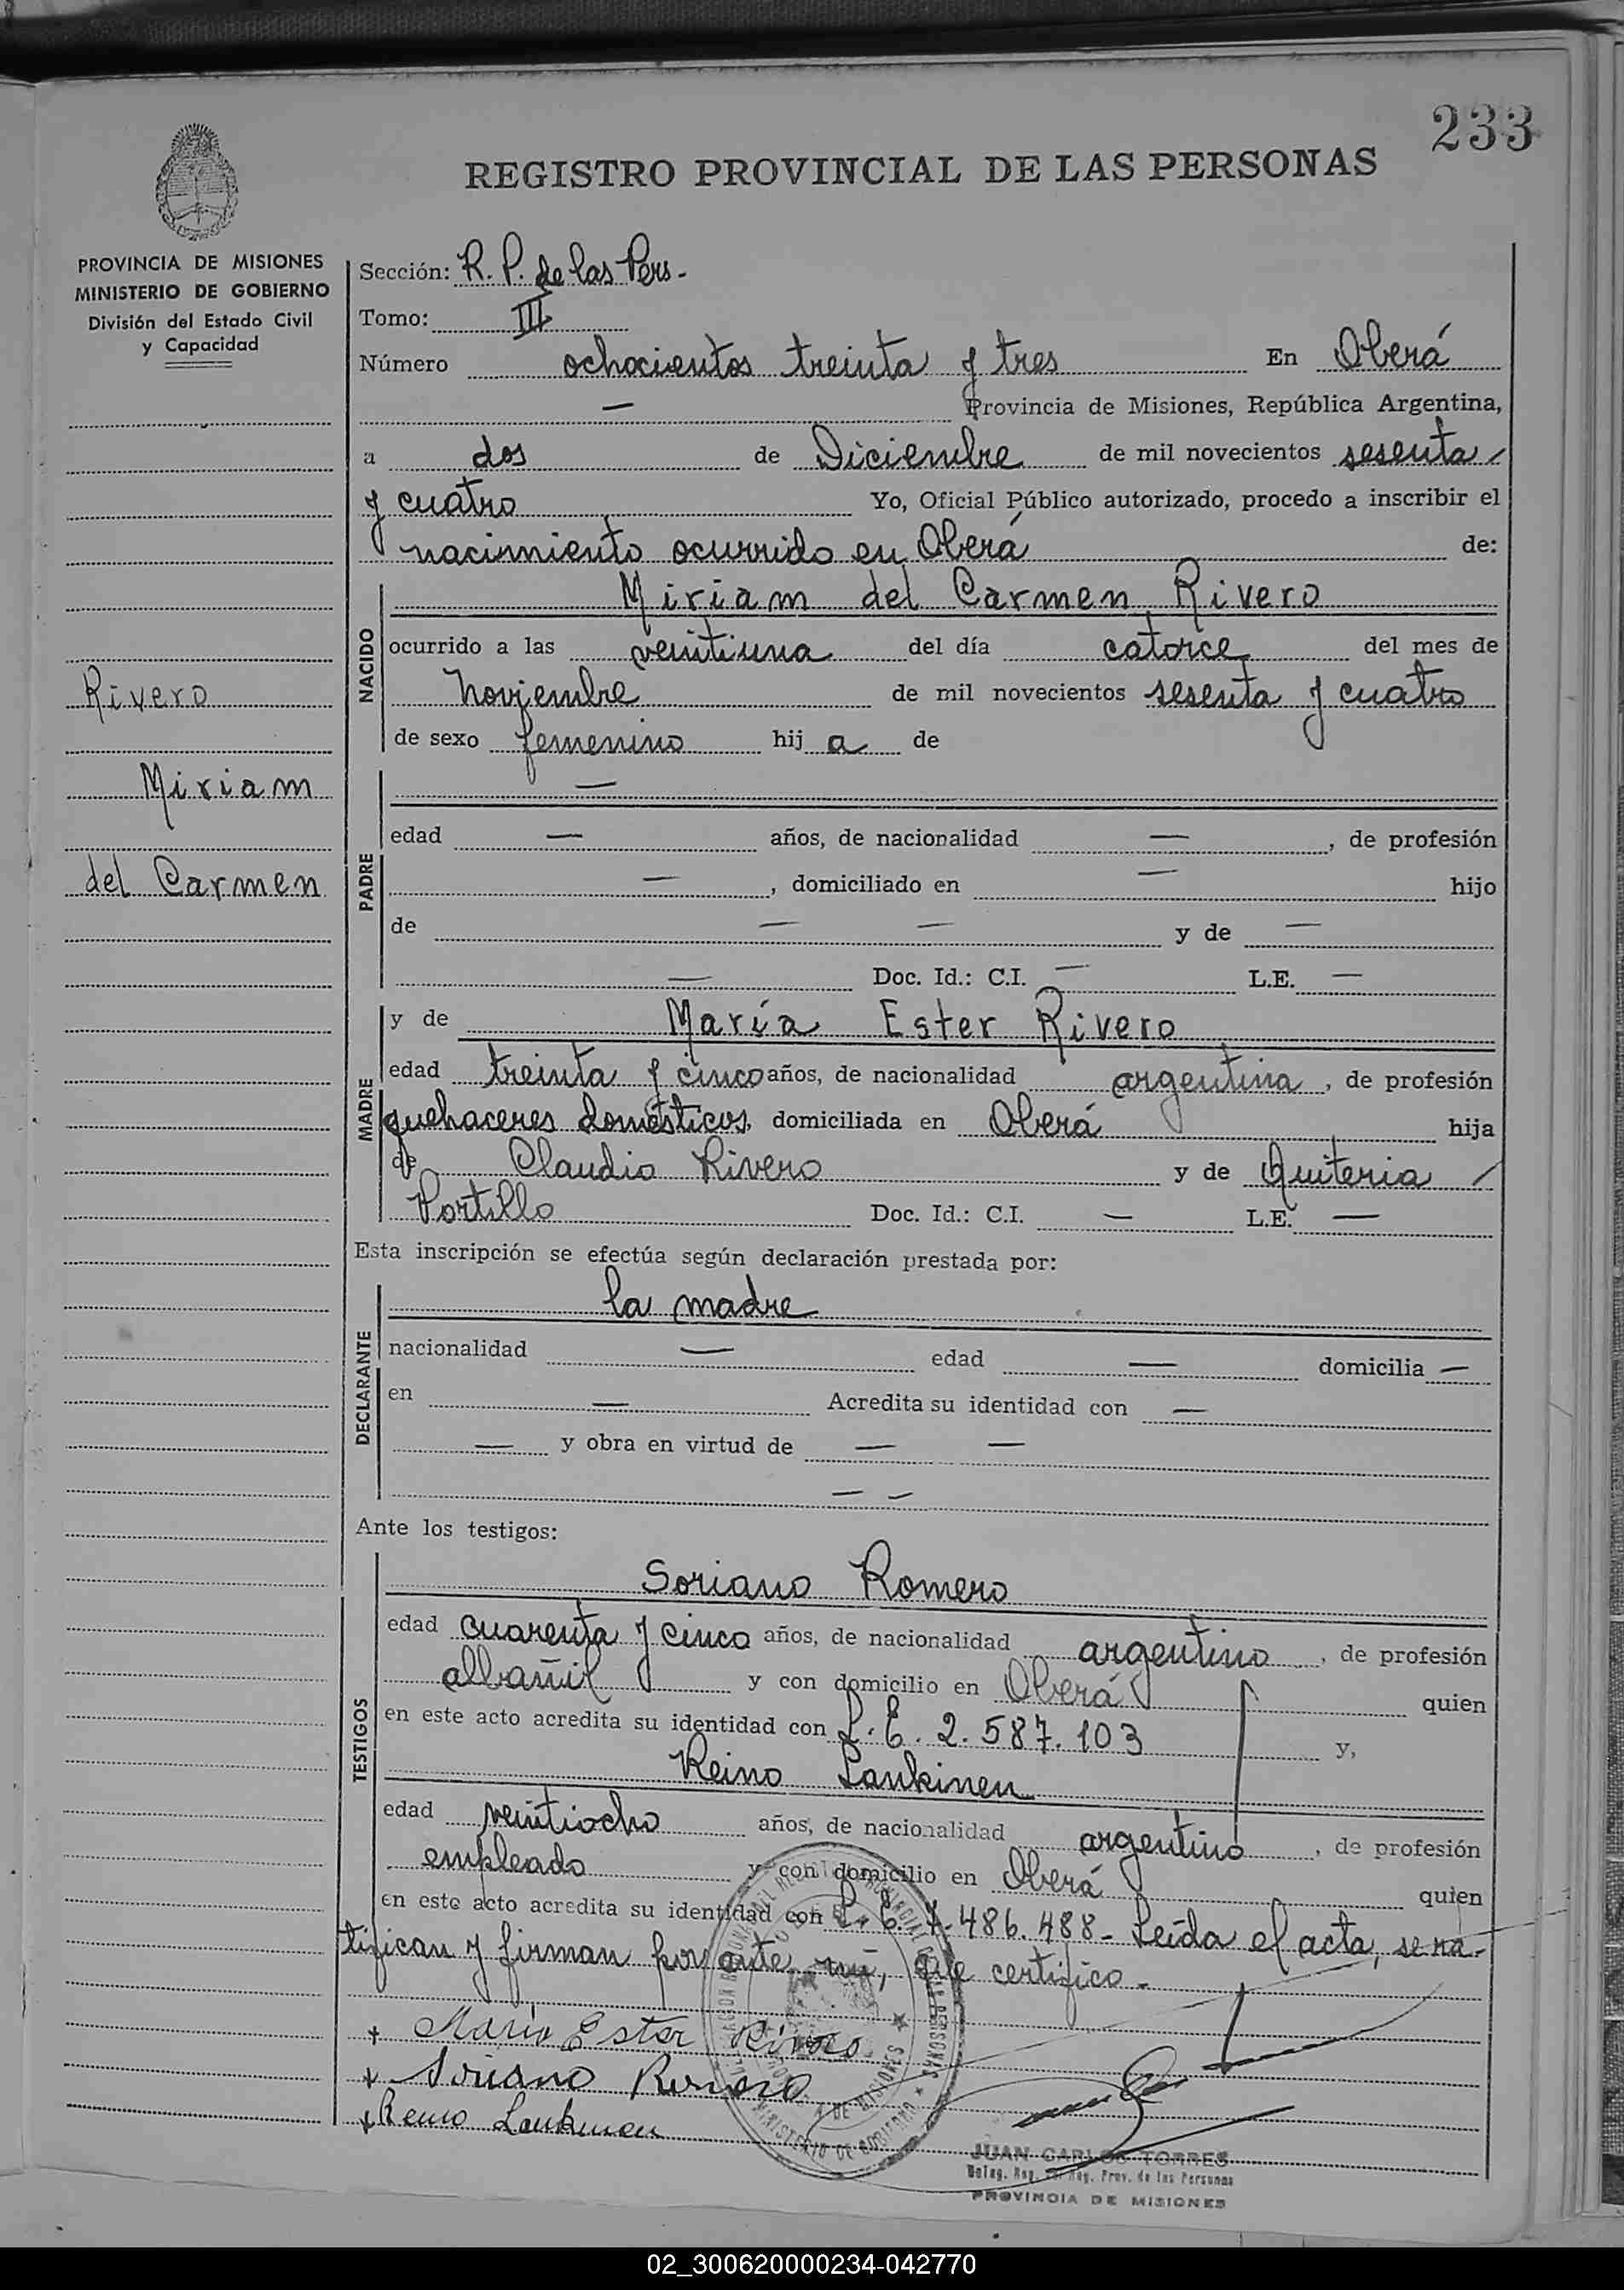 233
REGISTRO PROVINCIAL DE LAS PERSONAS
PROVINCIA DE MISIONES
MINISTERIO DE GOBIERNO
División del Estado Civil
y Capacidad
Rivero
Miriam
del Carmen
Sección: R. P. de las Pers.
Tomo: III
Número ochocientos treinta y tres En Oberá
— Provincia de Misiones, República Argentina,
a dos de Diciembre de mil novecientos sesenta
y cuatro Yo, Oficial Público autorizado, procedo a inscribir el
nacimiento ocurrido en Oberá de:
NACIDO
Miriam del Carmen Rivero
ocurrido a las veintiuna del día catorce del mes de
Noviembre de mil novecientos sesenta y cuatro
de sexo femenino hij a de
PADRE
—
edad — años, de nacionalidad —, de profesión
—, domiciliado en — hijo
de — — y de —
— Doc. Id.: C.I. — L.E. —
MADRE
y de María Ester Rivero
edad treinta y cinco años, de nacionalidad argentina, de profesión
quehaceres domésticos, domiciliada en Oberá hija
de Claudio Rivero y de Quiteria /
Portillo Doc. Id.: C.I. — L.E. —
Esta inscripción se efectúa según declaración prestada por:
DECLARANTE
la madre
nacionalidad — edad — domicilia —
en — Acredita su identidad con —
— y obra en virtud de — —
— —
Ante los testigos:
TESTIGOS
Soriano Romero
edad cuarenta y cinco años, de nacionalidad argentino, de profesión
albañil y con domicilio en Oberá quien
en este acto acredita su identidad con L.E. 2.587.103 y,
Reino Lankinen
edad veintiocho años, de nacionalidad argentino, de profesión
empleado y con domicilio en Oberá quien
en este acto acredita su identidad con L.E. 7.486.488.- Leída el acta, se ra-
tifican y firman por ante mí, que certifico.-
+ María Ester Rivero
+ Soriano Romero
+ Reino Lankinen
JUAN CARLOS TORRES
Deleg. Reg. Prov. de las Personas
PROVINCIA DE MISIONES
02_300620000234-042770